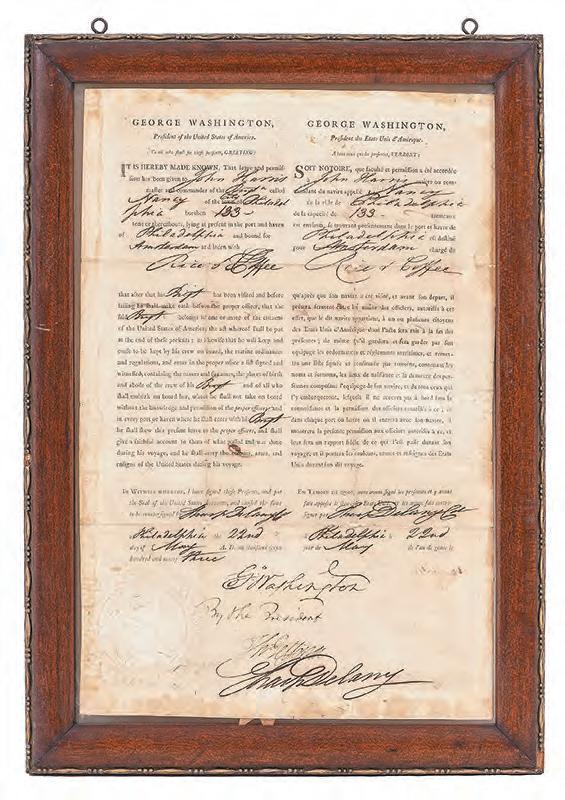 GEORGE WASHINGTON,
President of the United States of America.
To all who shall see these presents, GREETING:
IT IS HEREBY MADE KNOWN, That leave and permis-
sion has been given to John Harris
master and commander of the Brigt called
Nancy of the Philadel
phia burthen 133
tons or thereabouts, lying at present in the port and haven
of Philadelphia and bound for
Amsterdam and laden with
Rice & Coffee
that after that his Brigt has been visited and before
failing he shall make oath before the proper officer, that the
said Brigt belongs to one or more of the citizens
of the United States of America, the act whereof shall be put
at the end of these presents; as likewise that he will keep and
cause to be kept by his crew on board, the marine ordinances
and regulations, and enter in the proper office a list signed and
witnessed, containing the names and surnames, the places of birth
and abode of the crew of his Brigt and of all who
shall embark on board her, whom he shall not take on board
without the knowledge and permission of the proper officers; and
in every port or haven where he shall enter with his Brigt
he shall shew this present leave to the proper officers, and shall
give a faithful account to them of what passed and was done
during his voyage, and he shall carry the colours, arms, and
ensigns of the United States during his voyage.
IN WITNESS WHEREOF, I have signed these Presents, and put
the Seal of the United States thereunto, and caused the same
to be countersigned by Sharp Delany
Philadelphia the 22nd
day of May A. D. one thousand seven
hundred and ninety three
GEORGE WASHINGTON,
President des Etats Unis d'Amérique.
A tous ceux qui les présentes, VERRONT:
SOIT NOTOIRE, que faculté et permission a été accordée
à John Harris maitre ou com-
mandant du navire appellé Nancy
de la ville de Philadelphia
de la capacité de 133 tonneaux
ou environ, se trouvant présentement dans le port et havre de
Philadelphia et destiné
pour Amsterdam chargé de
Rice & Coffee
qu'après que son navire a été visité, et avant son départ, il
prêtera serment entre les mains des officiers, autorisés à cet
effet, que le dit navire appartient, à un ou plusieurs citoyens
des Etats Unis d'Amérique dont l'acte sera mis à la fin des
présentes; de même qu'il gardera et fera garder par son
équipage les ordonnances et réglemens maritimes, et remet-
tra une liste signée et confirmée par temoins, contenant les
noms et surnoms, les lieux de naissance et la demeure des per-
sonnes composant l'équipage de son navire, et de tous ceux qui
s'y embarqueront, lesquels il ne recevra pas à bord sans la
connoissance et la permission des officiers autorisés à ce; et
dans chaque port ou havre où il entrera avec son navire, il
montrera la présente permission aux officiers autorisés à ce, et
leur fera un rapport fidèle de ce qui s'est passé durant son
voyage, et il portera les couleurs, armes et enseignes des Etats
Unis durant son dit voyage.
EN TEMOIN DE QUOI, nous avons signé les présentes et y avons
fait apposer le sceau des Etats Unis, et fait contre-
signer par Sharp Delany
à Philadelphia le 22nd
jour de May de l'an de grace le
Go Washington
By the President
Th: Jefferson
Sharp Delany